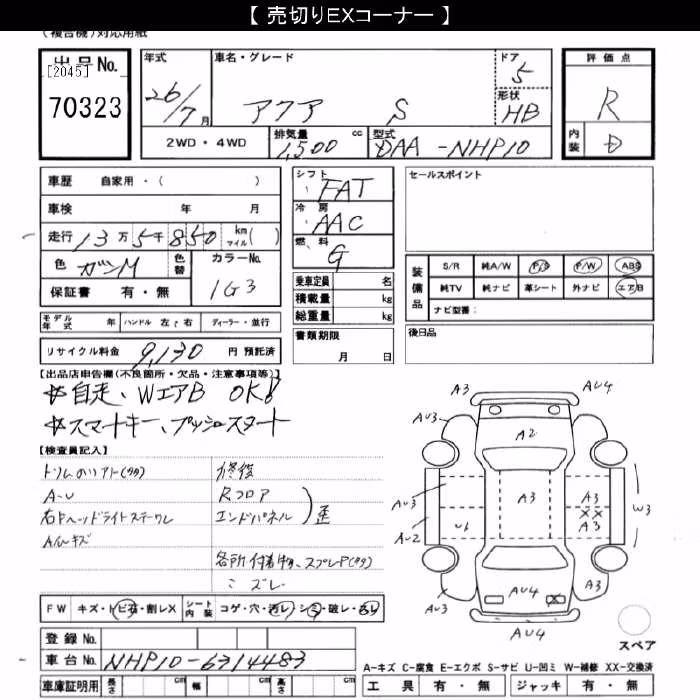 【 売切りEXコーナー 】
(複合機)対応用紙
出品No.
[2045]
70323
年式
26/7月
車名・グレード
アクア S
ドア
5
形状
HB
2WD・4WD
排気量 cc
1,500
型式
DAA-NHP10
評価点
R
内装
D
車歴 自家用・( )
車検 年 月
走行 13万5千850 km マイル( )
色 ガンM
色替
カラーNo.
1G3
保証書 有・無
シフト
FAT
冷房
AAC
燃料
G
乗車定員 名
積載量 kg
総重量 kg
セールスポイント
装備品
S/R 純A/W P/S P/W ABS
純TV 純ナビ 革シート 外ナビ エアB
ナビ型番:
モデル年式 年 ハンドル 左・右 ディーラー・並行
リサイクル料金 9,130 円 預託済
書類期限
月 日
後日品
【出品店申告欄(不良箇所・欠品・注意事項等)】
自走、WエアB OK!
スマートキー、プッシュスタート
【検査員記入】
A-U
右Fヘッドライトステーワレ
キズ
修復
Rフロア
エンドパネル 歪
各所付着物、スプレー
コズレ
A3
AU4
AU3
A2
A3
A3
XX
A3
AU3
AU2
U6
W3
AU3
AU4
A3
AU4
スペア
FW キズ・トビ石・割レX シート内装 コゲ・穴・汚レ・シミ・破レ・スレ
登録No.
車台No. NHP10-6314483
A-キズ C-腐食 E-エクボ S-サビ U-凹ミ W-補修 XX-交換済
車庫証明用 長さ cm 幅 cm 高さ cm
工具 有・無 ジャッキ 有・無